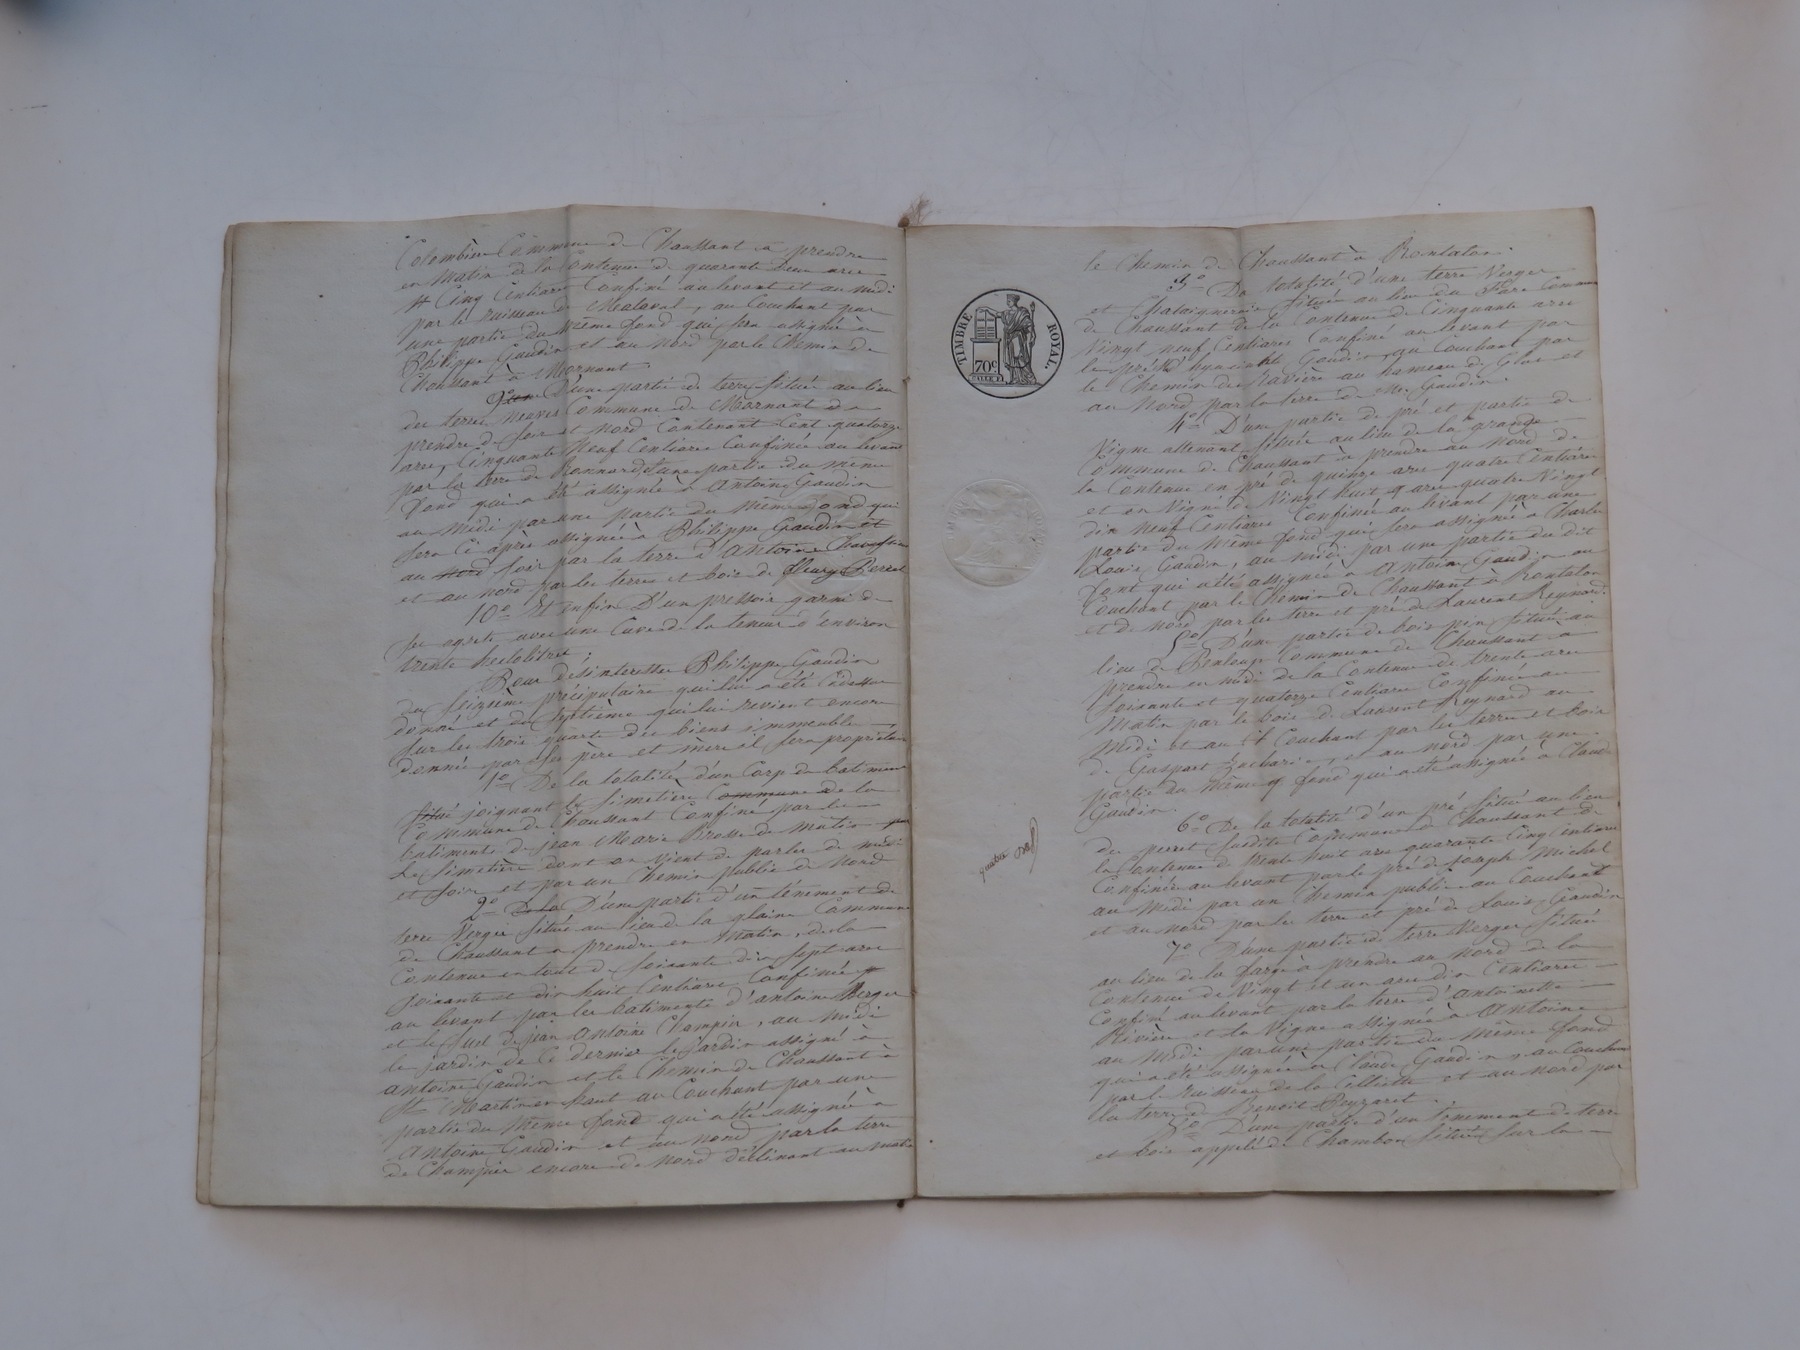 Colombière Commune de Chaussant à prendre
en Matin de la Contenue de quarante deux ares
Cinq Centiares Confiné au levant et au midi
par le ruisseau de Malaval, au Couchant par
une partie du même fond qui sera assignée à
Philippe Gaudin et au nord par le Chemin de
Chaussant à Mornant.
9° D'une partie de terre située au lieu
des terres neuves Commune de Mornant à
prendre de soir et nord Contenant Cent quatorze
ares, Cinquante Neuf Centiares Confinée au levant
par la terre de Bonnard, d'une partie du même
fond qui a été assignée à Antoine Gaudin
au midi par une partie du même fond qui
sera Ci après assignée à Philippe Gaudin et
au nord soir par la terre d'Antoine
et au nord par les terres et bois de fleury
10° Et enfin D'un pressoir garni de
ses agrets avec une Cuve de la teneur d'environ
trente hectolitres;
Pour désintéresser Philippe Gaudin
du Seizième précipulaire qui lui a été Cidessus
donné et du Septième qui lui revient encore
sur les trois quarts des biens immeubles
donnés par ses père et mère il sera propriétaire
1° De la totalité d'un Corp de batiment
situé joignant le Simetière Commune de la
Commune de Chaussant Confiné par les
batiments de jean Marie Brosse de Matin par
Le Simetière dont on vient de parler de midi
et soir et par un Chemin public de Nord
2° De la D'une partie d'un tènement de
terre Verger situé au lieu de la plaine Commune
de Chaussant à prendre en Matin, de la
Contenue en tout de Soixante dix sept ares
soixante et dix huit Centiares Confinée
au levant par les batiments d'antoine Berger
et le Suel de jean Antoine Champin, au midi
le jardin de Ce dernier le jardin assigné à
Antoine Gaudin et le Chemin de Chaussant à
St Martin en haut au Couchant par une
partie du Même fond qui a été assignée à
Antoine Gaudin et au nord par la terre
de Champin encore de Nord déclinant au matin
le Chemin de Chaussant à Rontalon.
3° De la totalité d'une terre Verger
et Chataigneraie située au lieu du Commune
de Chaussant de la Contenue de Cinquante ares
Vingt neuf Centiares Confiné au levant par
le pré d'hyacinthe Gaudin, au Couchant par
le Chemin de Ravière au hameau de et
au Nord par la terre de Mr. Gaudin.
4° D'une partie de pré et partie de
Vigne attenant située au lieu de la grange
Commune de Chaussant à prendre au Nord de
la Contenue en pré de quinze ares quatre Centiares
et en Vigne de Vingt huit ares quatre Vingt
dix neuf Centiares Confinée au levant par une
partie du Même fond qui sera assignée à Charles
Louis Gaudin, au midi par une partie du dit
font qui a été assignée à Antoine Gaudin au
Couchant par le Chemin de Chaussant à Rontalon
et de Nord par les terre et pré de Laurent Reynard.
5° D'une partie de bois pin située au
lieu de Commune de Chaussant à
prendre en midi de la Contenue de trente ares
soixante et quatorze Centiares Confinée au
Matin par le bois de Laurent Reynard au
Midi et au Couchant par les terres et bois
de Gaspart Zacharie, et au nord par une
partie du Même fond qui a été assignée à Claude
Gaudin.
6° De la totalité d'un pré situé au lieu
de perret susdite Commune de Chaussant de
la Contenue de trente huit ares quarante Cinq Centiares
Confinée au levant par le pré de Joseph Michel
au Midi par un Chemin public au Couchant
et au nord par les terre et pré de Louis Gaudin
7° D'une partie de terre Verger située
au lieu de la farge à prendre au Nord de la
Contenue de Vingt et un ares dix Centiares
Confiné au levant par la terre d'Antoinette
Rivière et la Vigne assignée à Antoine
au Midi par une partie du même fond
qui a été assignée à Claude Gaudin, au Couchant
par le ruisseau de la et au Nord par
la terre de Benoit Peyraret.
8° D'une partie d'un tènement de terre
et bois appelé de Chambon située sur la
TIMBRE ROYAL.
70c